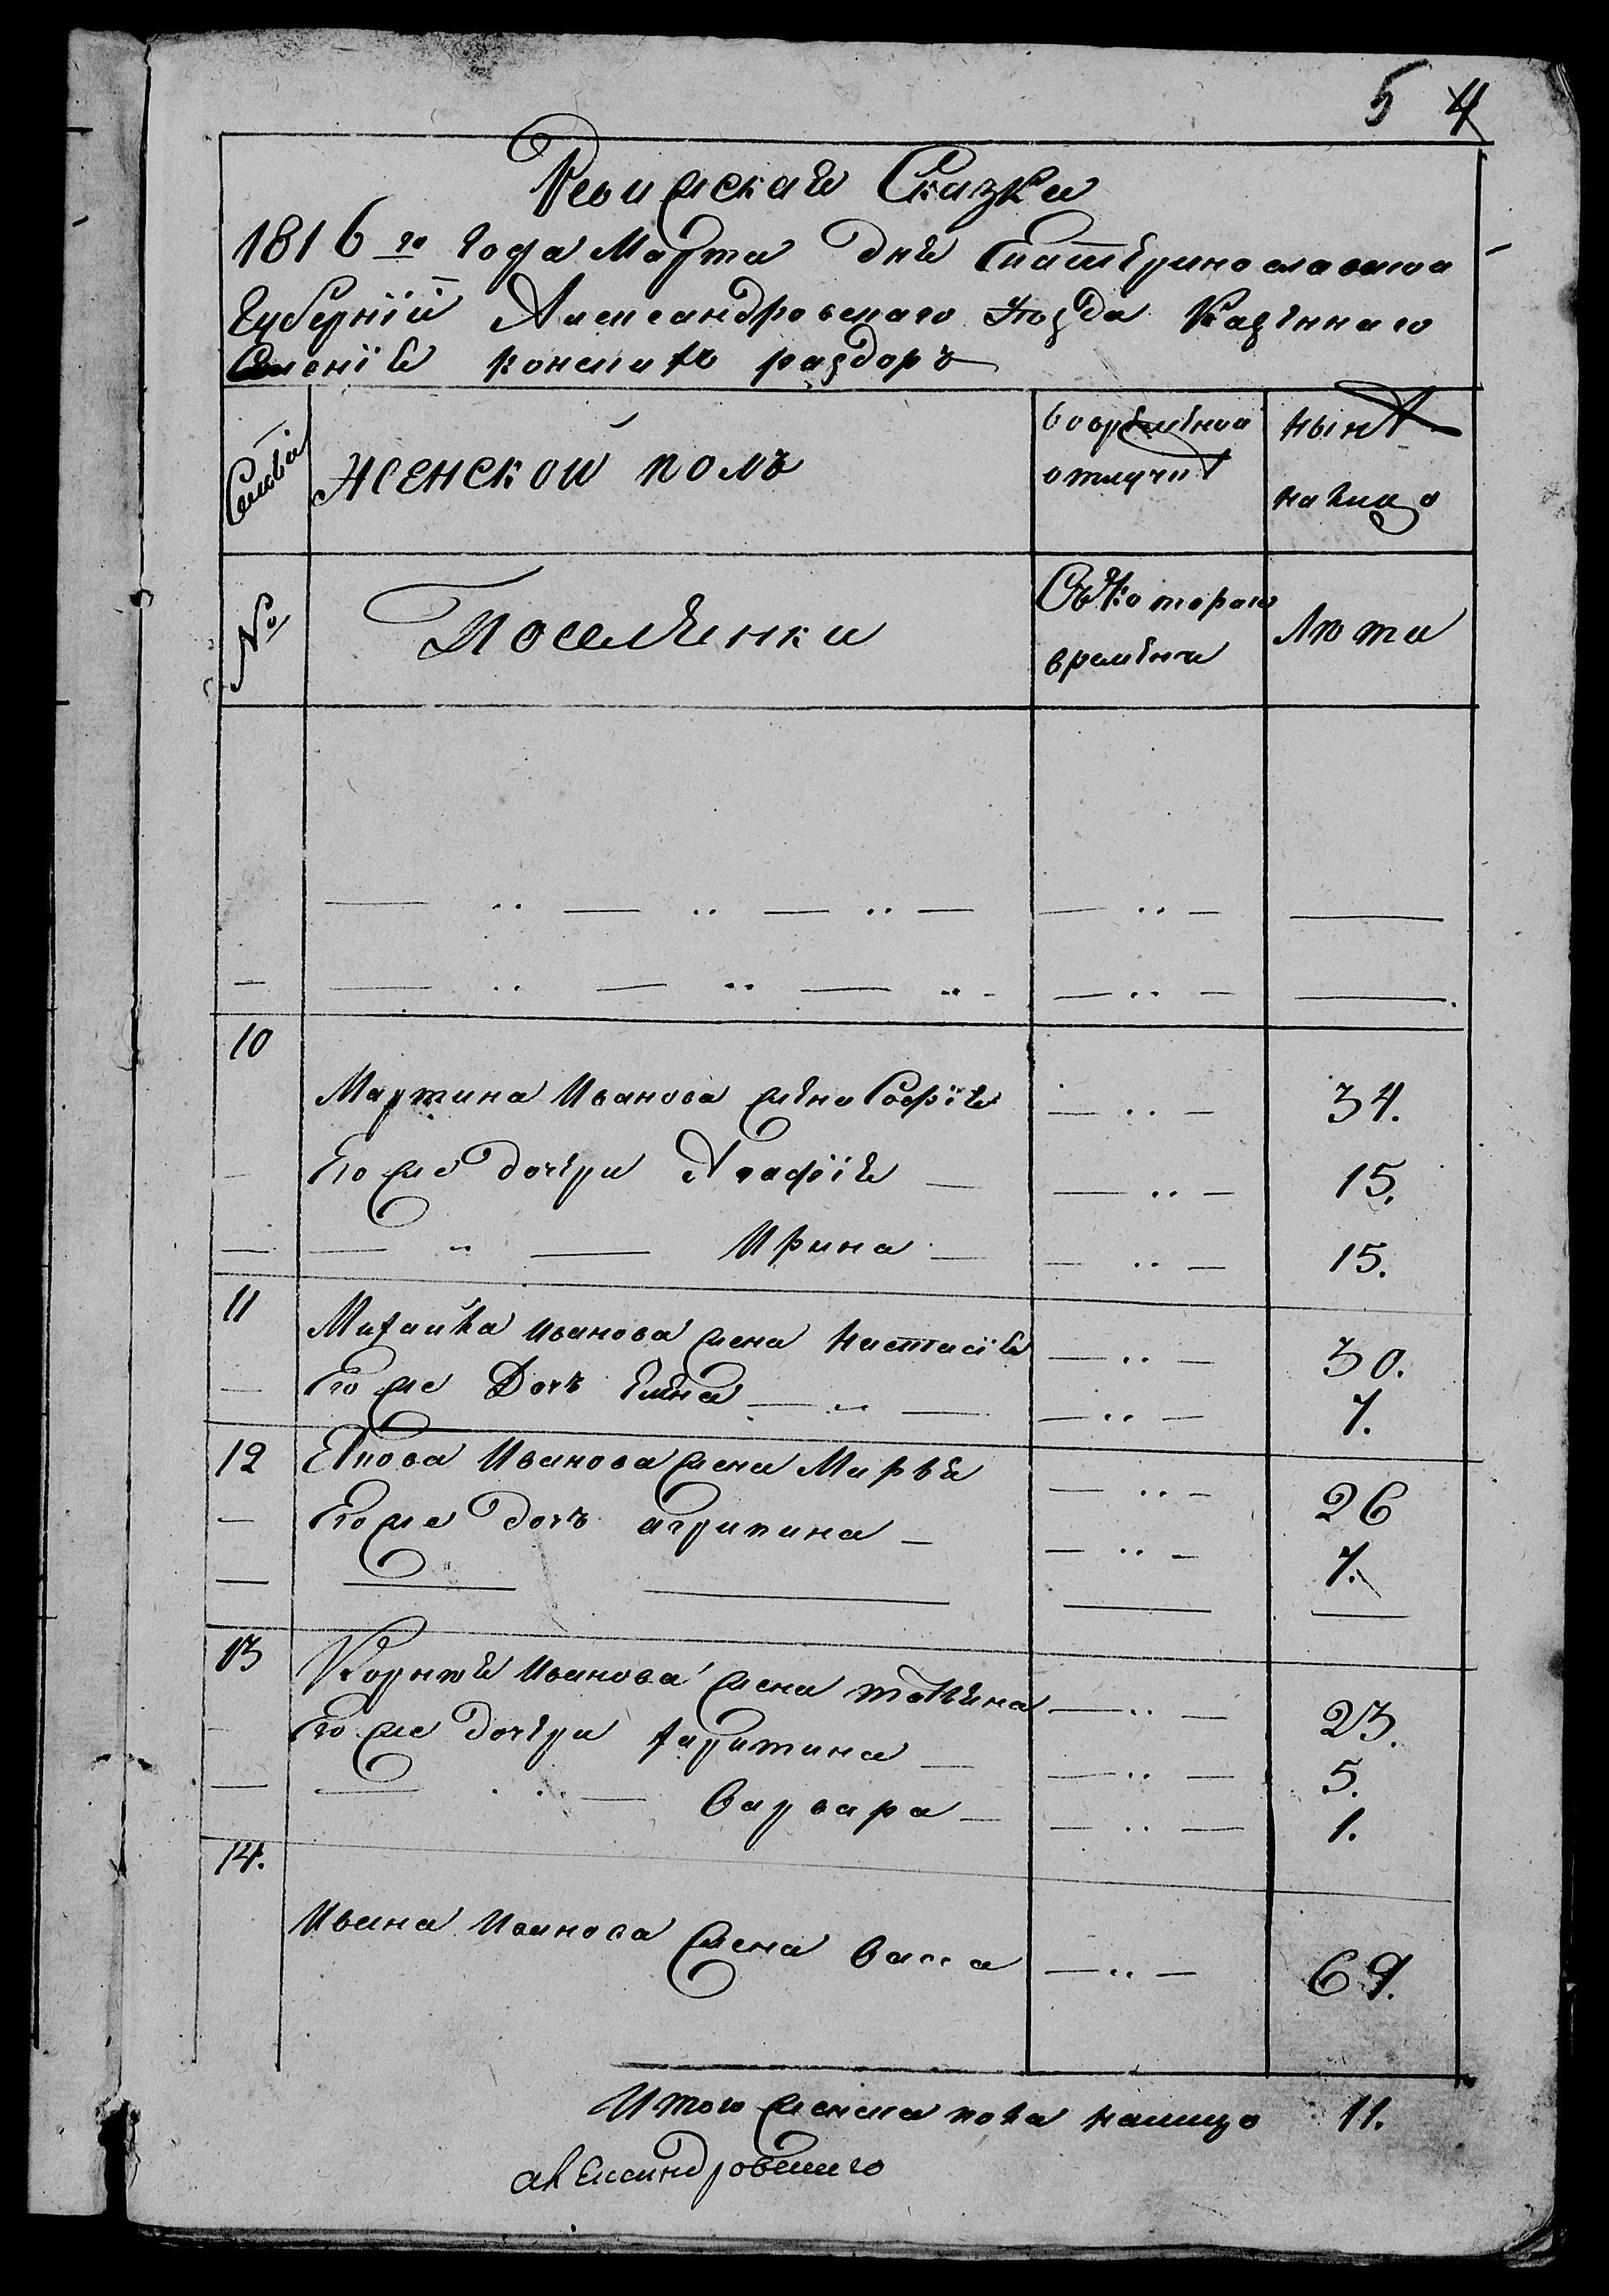 5 4
Ревижская Сказка
1816го года Марта дня Екатеринославской
Губернїи Александровскаго уезда Казеннаго
Селенїя конскихъ раздоръ
Семьи
женской полъ
во временной
отлучкѣ
нынѣ
на лицо
№
Поселянки
Съ котораго
времени
Лѣта
10
Мартина Иванова жена Софїя 34.
Его же дочери Агафїя 15.
Ирина 15.
11 Михайла Иванова жена Настасїя 30.
Его же Дочь Елена 7.
12 Якова Иванова жена Марья 26
Его же дочь агрипина 7.
13 Корнѣя Иванова жена татьяна 23.
Его же дочери харитина 5.
варвара 1.
14.
Ивана Иванова жена васса 69.
Итого женска пола налицо 11.
александровскаго